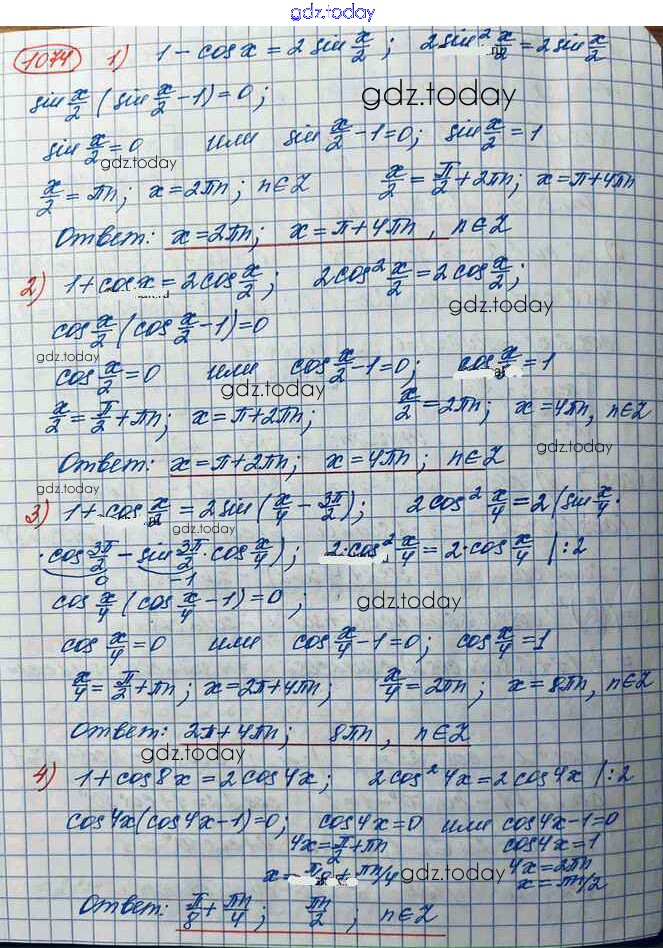 gdz.today
1074 1) 1 - cos x = 2 sin x/2; 2 sin² x/2 = 2 sin x/2
sin x/2 (sin x/2 - 1) = 0; gdz.today
sin x/2 = 0 или sin x/2 - 1 = 0; sin x/2 = 1
gdz.today
x/2 = πn; x = 2πn; n∈Z x/2 = π/2 + 2πn; x = π + 4πn
Ответ: x = 2πn; x = π + 4πn, n∈Z
2) 1 + cos x = 2 cos x/2; 2 cos² x/2 = 2 cos x/2;
gdz.today
cos x/2 (cos x/2 - 1) = 0
gdz.today
cos x/2 = 0 или cos x/2 - 1 = 0; cos x/2 = 1
gdz.today
x/2 = π/2 + πn; x = π + 2πn; x/2 = 2πn; x = 4πn, n∈Z
gdz.today
Ответ: x = π + 2πn; x = 4πn; n∈Z
gdz.today
3) 1 + cos x/2 = 2 sin (x/4 - 3π/2); 2 cos² x/4 = 2 (sin x/4 ·
gdz.today
· cos 3π/2 - sin 3π/2 · cos x/4); 2·cos² x/4 = 2·cos x/4 |:2
0 -1
cos x/4 (cos x/4 - 1) = 0; gdz.today
cos x/4 = 0 или cos x/4 - 1 = 0; cos x/4 = 1
x/4 = π/2 + πn; x = 2π + 4πn; x/4 = 2πn; x = 8πn, n∈Z
Ответ: 2π + 4πn; 8πn, n∈Z
gdz.today
4) 1 + cos 8x = 2 cos 4x; 2 cos² 4x = 2 cos 4x |:2
cos 4x (cos 4x - 1) = 0; cos 4x = 0 или cos 4x - 1 = 0
4x = π/2 + πn cos 4x = 1
x = π/8 + πn/4 gdz.today 4x = 2πn
x = πn/2
Ответ: π/8 + πn/4; πn/2; n∈Z